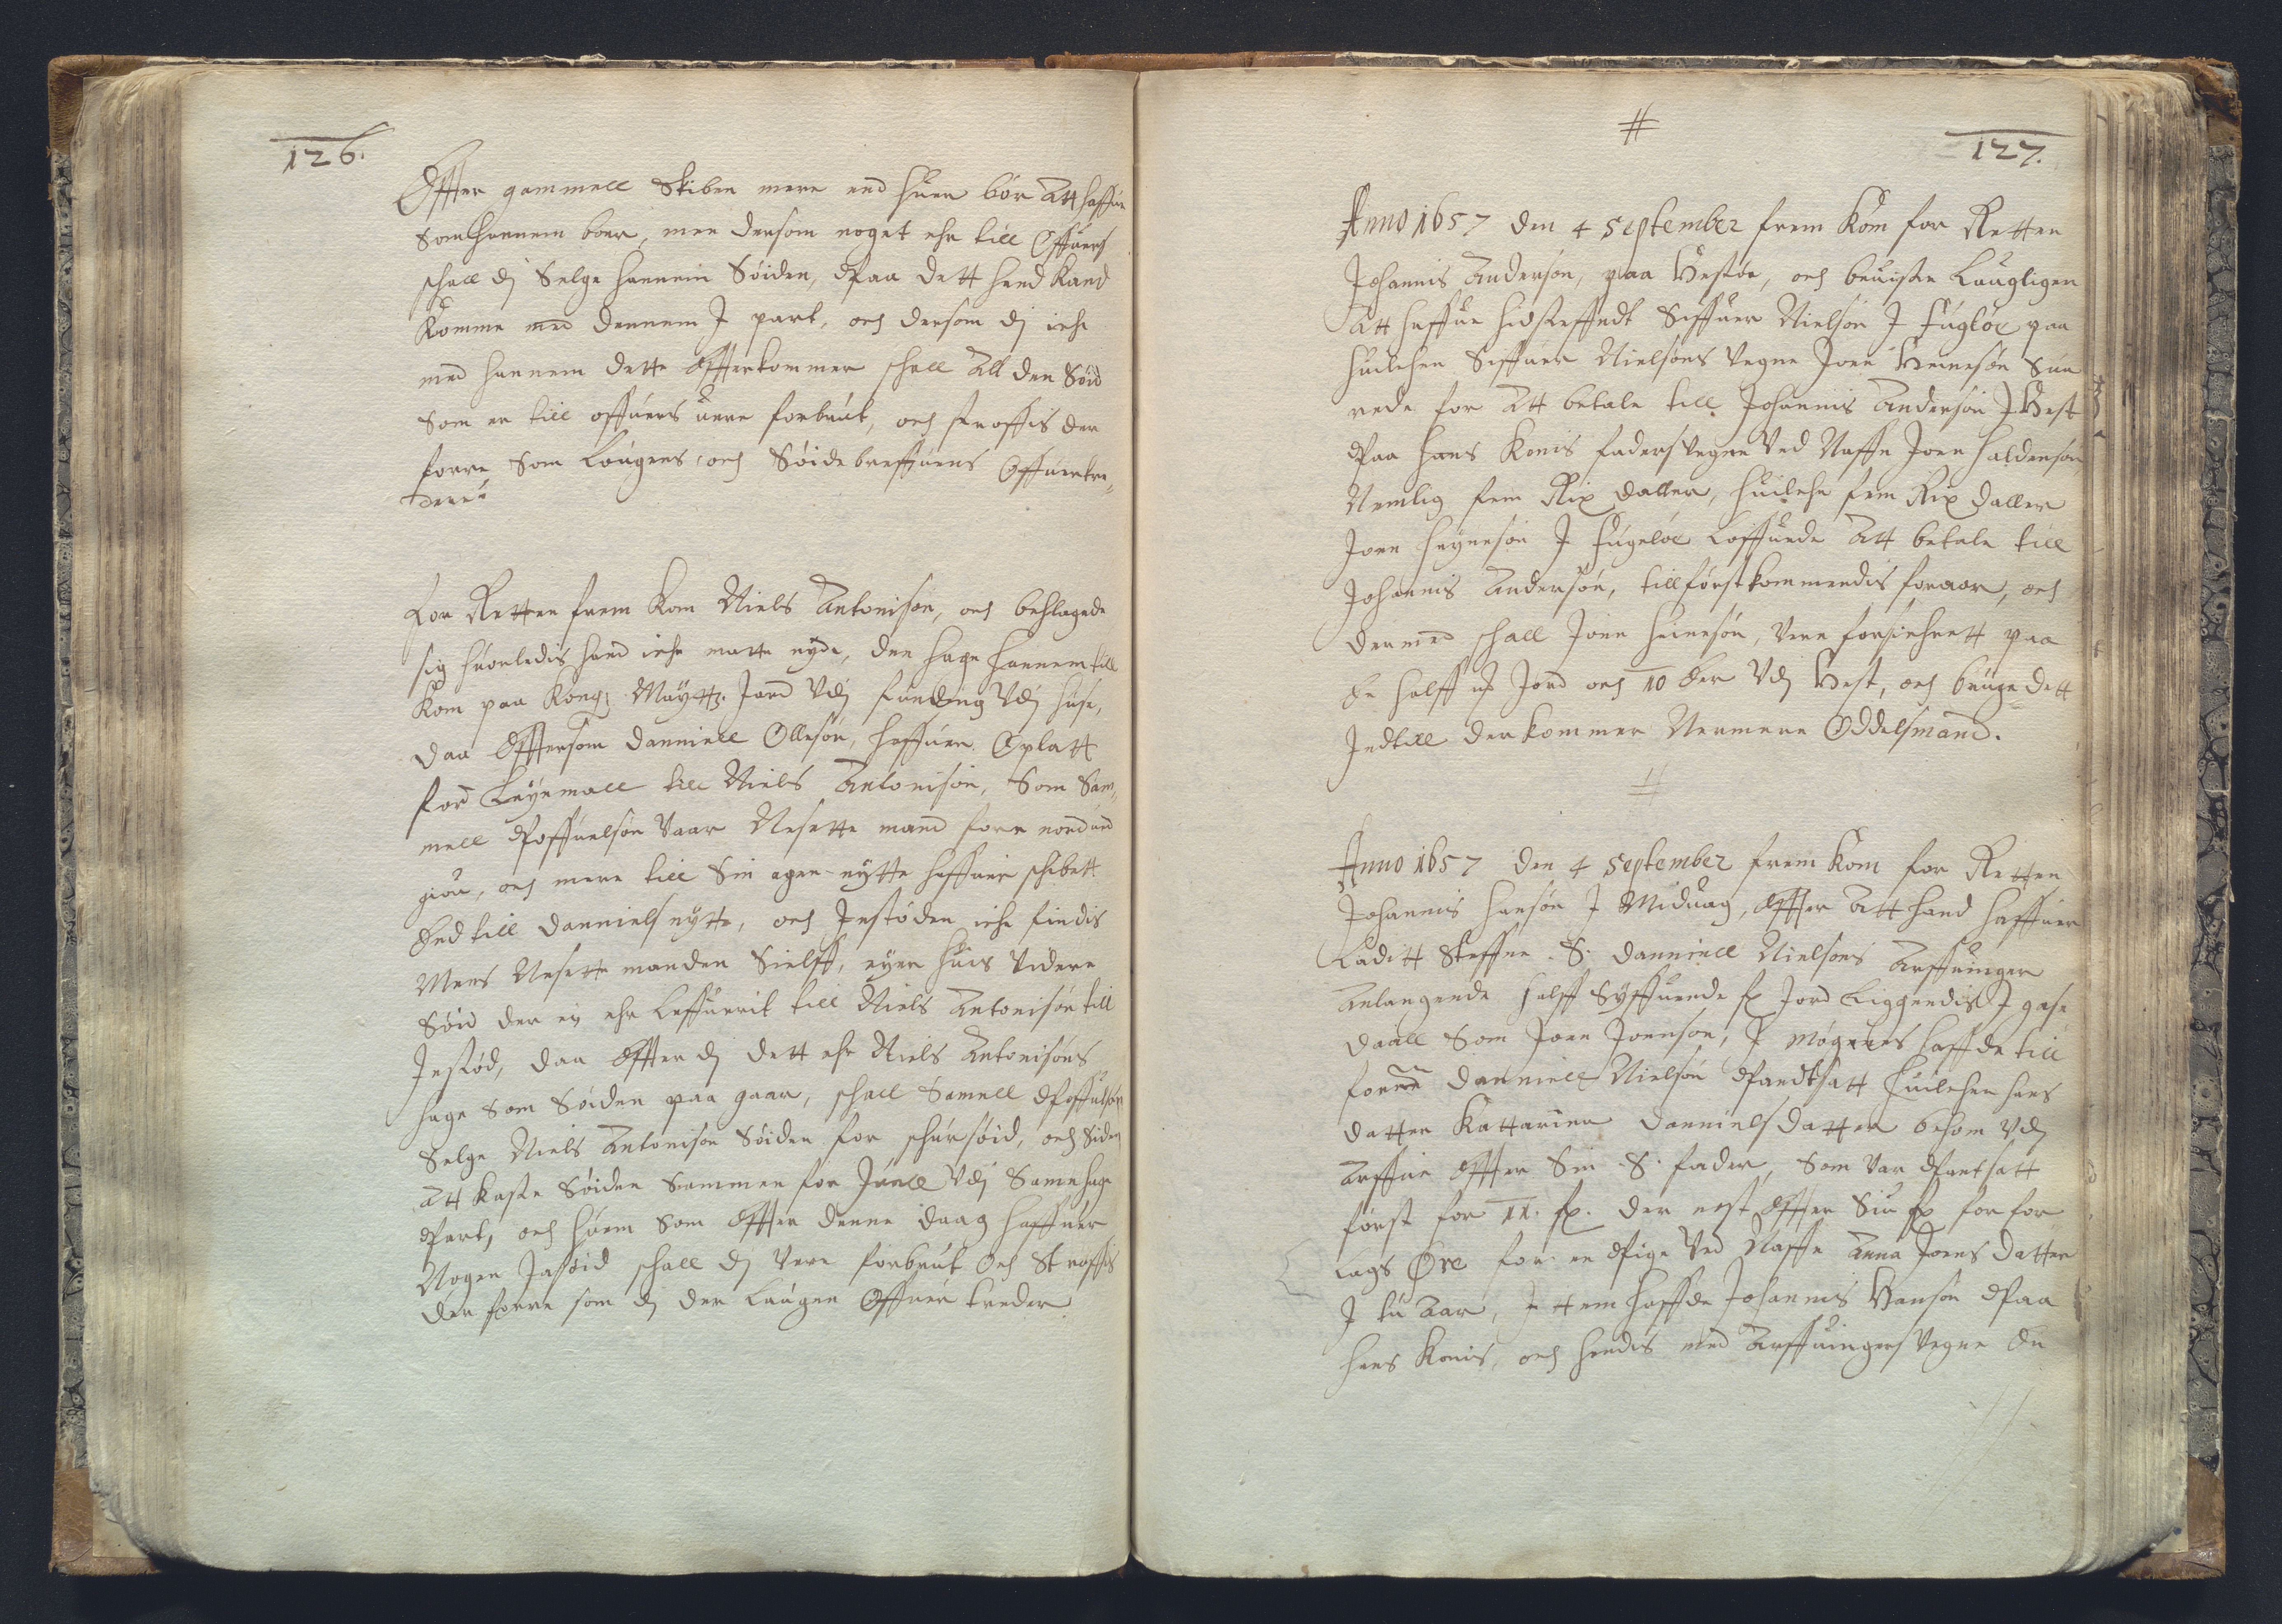 126.
Effter gammell Skiben mere end huer bør Att haffue
Som hannem bør, men dersom noget ehr till Offuers
schall dj Selge hannem Søiden, Paa dett hand Kand
Komme med dennem J part, och dersom dj iche
med hannem dette Effterkommer schall All den Søid
Som er till offuers uere forbrut, och straffis der
forre Som Lougens och Søidebreffuens Offuertre-
dere
For Retten frem Kom Niels Antonisøn, och beklagede
sig huorledis hand iche motte nyde, den hage hannem till
Kom paa Kong: Maytts. Jord Vdj funding Vdj huse,
daa Efftersom Danniell Ollesøn, haffuer Oplatt
ford Leyemall till Niels Antonisøn, Som Sam-
mell Poffuelsøn Vaar Nesette mand forre
giør, och mere till Sin egen nytte haffuer schebett
End till Danniels nytte, och Jnstøden iche findis
Mens Nesette manden Sielff, eyer huis Videre
Søid der ey ehr Leffuerit till Niels Antonisøn till
Jnstød, daa Effter dj dett ehr Niels Antonisøns
hage Som Søiden paa gaar, schall Samell Poffuelsøn
Selge Niels Antonisøn Søiden for schursøid, och Siden
Att kaste Søiden Sammen for Juell Vdj Samme hage
Part, och huem Som Effter denne daag haffuer
Nogen Jasøid schall dj Vere forbrut Och Straffis
der forre som dj der Laugen Offuer treder
#
127.
Anno 1657 den 4 September frem Kom for Retten
Johannis Andersøn, paa Vestøe, och beuiste Laugligen
Att haffue hidsteffndt Siffuer Nielsøn J Fugløe paa
huilchen Siffuer Nielsøns Vegne Joen Heinesøn Sua
rede for Att betale till Johannis Andersøn J Vest
Paa hans Konis faders Vegne Ved Naffn Joen Haldensøn
Nemlig fem Rix daller, huilche fem Rix daller
Joen Heynesøn J Fugeløe Loffuede Att betale till
Johannis Andersøn, till først kommendis foraar, och
dermed schall Joen Heinesøn, Vere forsichrett paa
de halff Jord och 10 Vdj Vest, och bruge dett
Jndtill der kommer Nermere Oddelsmand.
#
Anno 1657 den 4 September frem Kom for Retten
Johannis Hansøn J Miduag, Effter Att hand haffuer
Laditt Steffne S. Danniell Nielsøns Arffuinger
Anlangende halff Syffuende Jord Liggendis J gase
daall Som Joen Joensøn, J Møgenes haffde till
forne Danniell Nielsøn Pandtsatt huilchen hans
datter Kattarina Danniels datter bekom Vdj
Arffue Effter Sin S. fader, Som Var Pantsatt
først for 11. der nest Effter Siu for for
Lags Øre for en Pige Ved Naffn Anna Joens datter
J tu Aar, Jttem haffde Johannis Hansøn Paa
hans Konis, och hendis med Arffuingers Vegne En